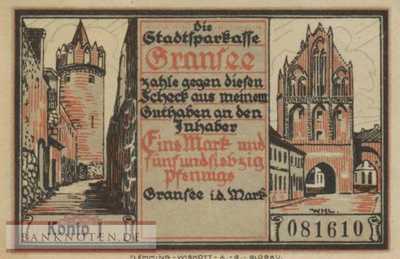 Die
Stadtsparkasse
Gransee
zahle gegen diesen
Scheck aus meinem
Guthaben an den
Inhaber
Eine Mark und
fünfundsiebzig
Pfennige
Gransee i.d. Mark
WHL.
Konto 1
081610
BANKNOTEN.DE
FLEMMING-WISKOTT A-G-GLOGAU